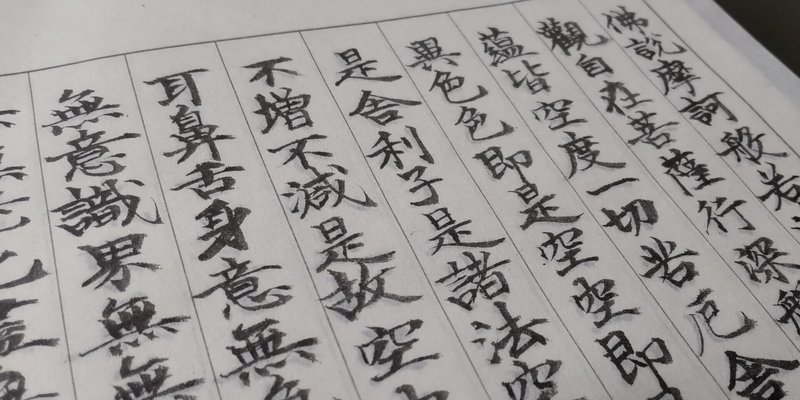 佛說摩訶般若
觀自在菩薩行深般
蘊皆空度一切苦厄舍
異色色即是空空即
是舍利子是諸法空
不增不減是故空
耳鼻舌身意無
無意識界無無